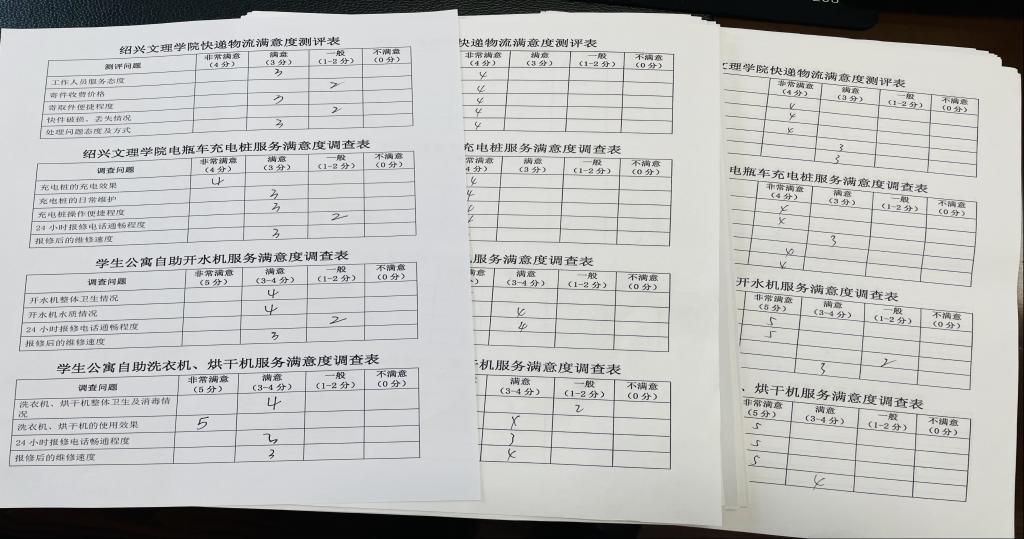 绍兴文理学院快递物流满意度测评表
测评问题 非常满意（4分） 满意（3分） 一般（1-2分） 不满意（0分）
工作人员服务态度 3
寄件收费价格 2
寄取件便捷程度 3
快件破损、丢失情况 2
处理问题态度及方式 3
绍兴文理学院电瓶车充电桩服务满意度调查表
调查问题 非常满意（4分） 满意（3分） 一般（1-2分） 不满意（0分）
充电桩的充电效果 4
充电桩的日常维护 3
充电桩操作便捷程度 3
24小时报修电话通畅程度 2
报修后的维修速度 3
学生公寓自助开水机服务满意度调查表
调查问题 非常满意（5分） 满意（3-4分） 一般（1-2分） 不满意（0分）
开水机整体卫生情况 4
开水机水质情况 4
24小时报修电话通畅程度 2
报修后的维修速度 3
学生公寓自助洗衣机、烘干机服务满意度调查表
调查问题 非常满意（5分） 满意（3-4分） 一般（1-2分） 不满意（0分）
洗衣机、烘干机整体卫生及消毒情况 4
洗衣机、烘干机的使用效果 5
24小时报修电话畅通程度 3
报修后的维修速度 3
快递物流满意度测评表
非常满意（4分） 满意（3分） 一般（1-2分） 不满意（0分）
4
4
4
4
4
充电桩服务满意度调查表
满意（3分） 一般（1-2分） 不满意（0分）
4
4
4
4
机服务满意度调查表
满意（3-4分） 一般（1-2分） 不满意（0分）
4
4
干机服务满意度调查表
满意（3-4分） 一般（1-2分） 不满意（0分）
2
4
3
4
理学院快递物流满意度测评表
非常满意（4分） 满意（3分） 一般（1-2分） 不满意（0分）
4
4
4
3
3
电瓶车充电桩服务满意度调查表
非常满意（4分） 满意（3分） 一般（1-2分） 不满意（0分）
4
4
3
4
4
开水机服务满意度调查表
非常满意（5分） 满意（3-4分） 一般（1-2分） 不满意（0分）
5
5
2
3
、烘干机服务满意度调查表
非常满意（5分） 满意（3-4分） 一般（1-2分） 不满意（0分）
5
5
5
4